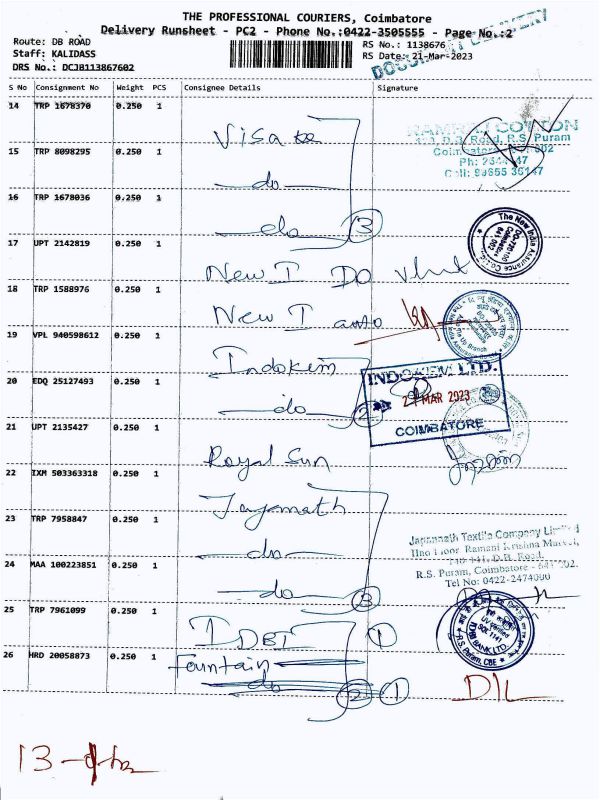 THE PROFESSIONAL COURIERS, Coimbatore
Delivery Runsheet - PC2 - Phone No.:0422-3505555 - Page No.:2
Route: DB ROAD
Staff: KALIDASS
DRS No.: DCJB113867602
RS No.: 1138676
RS Date: 21-Mar-2023
DOCUMENT DELIVERY
S No Consignment No Weight PCS Consignee Details Signature
14 TRP 1678370 0.250 1
Visa
COTTON
D.B. Road, R.S. Puram
15 TRP 8098295 0.250 1
do
16 TRP 1678036 0.250 1
do 3
The New India Assurance Co. Ltd.
17 UPT 2142819 0.250 1
New I DO
18 TRP 1588976 0.250 1
New I
19 VPL 940598612 0.250 1
Indokem
INDOKEM LTD.
20 EDQ 25127493 0.250 1
do 2
21 MAR 2023
COIMBATORE
21 UPT 2135427 0.250 1
Royal Sun
22 IXM 503363318 0.250 1
Jagannath
23 TRP 7958847 0.250 1
do
Jagannath Textile Company Limited
IInd Floor Ramani Krishna Market,
D.B. Road,
R.S. Puram, Coimbatore
Tel No: 0422-2474000
24 MAA 100223851 0.250 1
do 3
25 TRP 7961099 0.250 1
IDBI 1
IDBI BANK LTD
R.S. Puram, CBE
26 HRD 20058873 0.250 1
Fountain
do 2 1
D/L
13